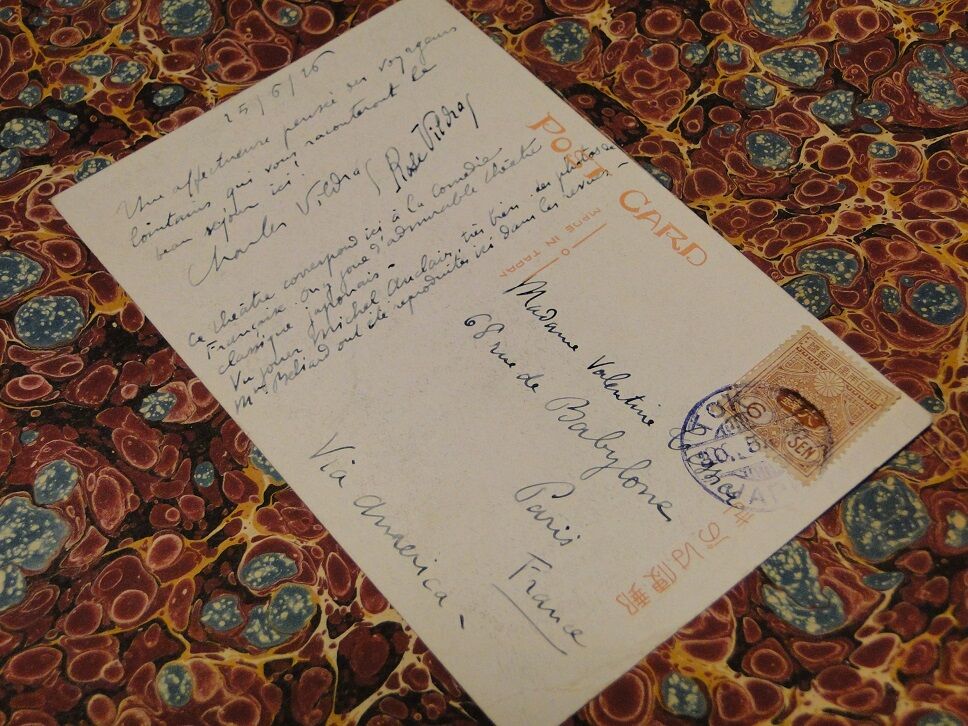 15/5/26
Une affectueuse pensée des voyageurs
lointains qui vous raconteront le
beau séjour ici !
Charles Vildrac Rose Vildrac
Ce théâtre correspond ici à la comédie
Française. On y joue d'admirable théâtre
classique japonais -
Vu jouer Michel Auclair, très bien. des photos de
ont été reproduites ici dans les revues -
Via America -
POST CARD
MADE IN JAPAN
Madame Valentine Tessier
68 rue de Babylone
Paris
France
きがは便郵
SEN